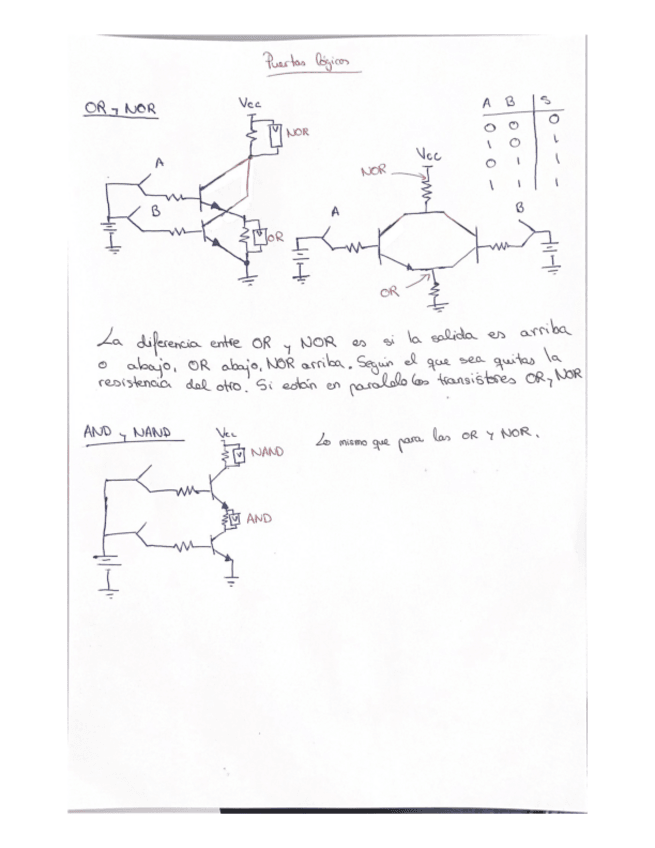 Puertas lógicas
OR y NOR
Vcc
NOR
A
B
OR
A B S
0 0 0
1 0 1
0 1 1
1 1 1
Vcc
NOR
A
B
OR
La diferencia entre OR y NOR es si la salida es arriba
o abajo, OR abajo, NOR arriba. Según el que sea quitas la
resistencia del otro. Si están en paralelo los transistores OR y NOR
AND y NAND
Vcc
NAND
Lo mismo que para las OR y NOR.
AND